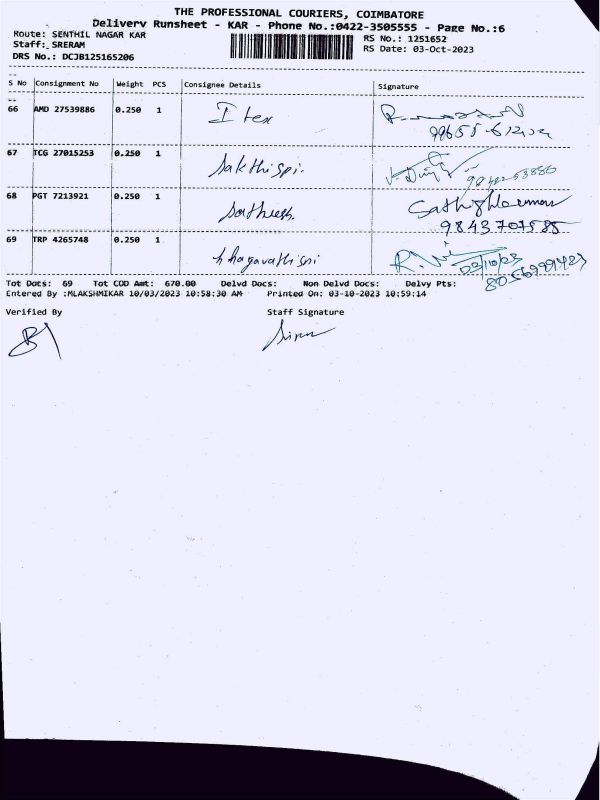 THE PROFESSIONAL COURIERS, COIMBATORE
Delivery Runsheet - KAR - Phone No.:0422-3505555 - Page No.:6
Route: SENTHIL NAGAR KAR
RS No.: 1251652
Staff: SRERAM
RS Date: 03-Oct-2023
DRS No.: DCJB125165206
S No Consignment No Weight PCS Consignee Details Signature
66 AMD 27539886 0.250 1 I tex
67 TCG 27015253 0.250 1 Sakthispi.
68 PGT 7213921 0.250 1 Sathiesh
9843707585
69 TRP 4265748 0.250 1
03/10/23
8056999423
Tot Docs: 69 Tot COD Amt: 670.00 Delvd Docs: Non Delvd Docs: Delvy Pts:
Entered By :MLAKSHMIKAR 10/03/2023 10:58:30 AM Printed On: 03-10-2023 10:59:14
Verified By Staff Signature